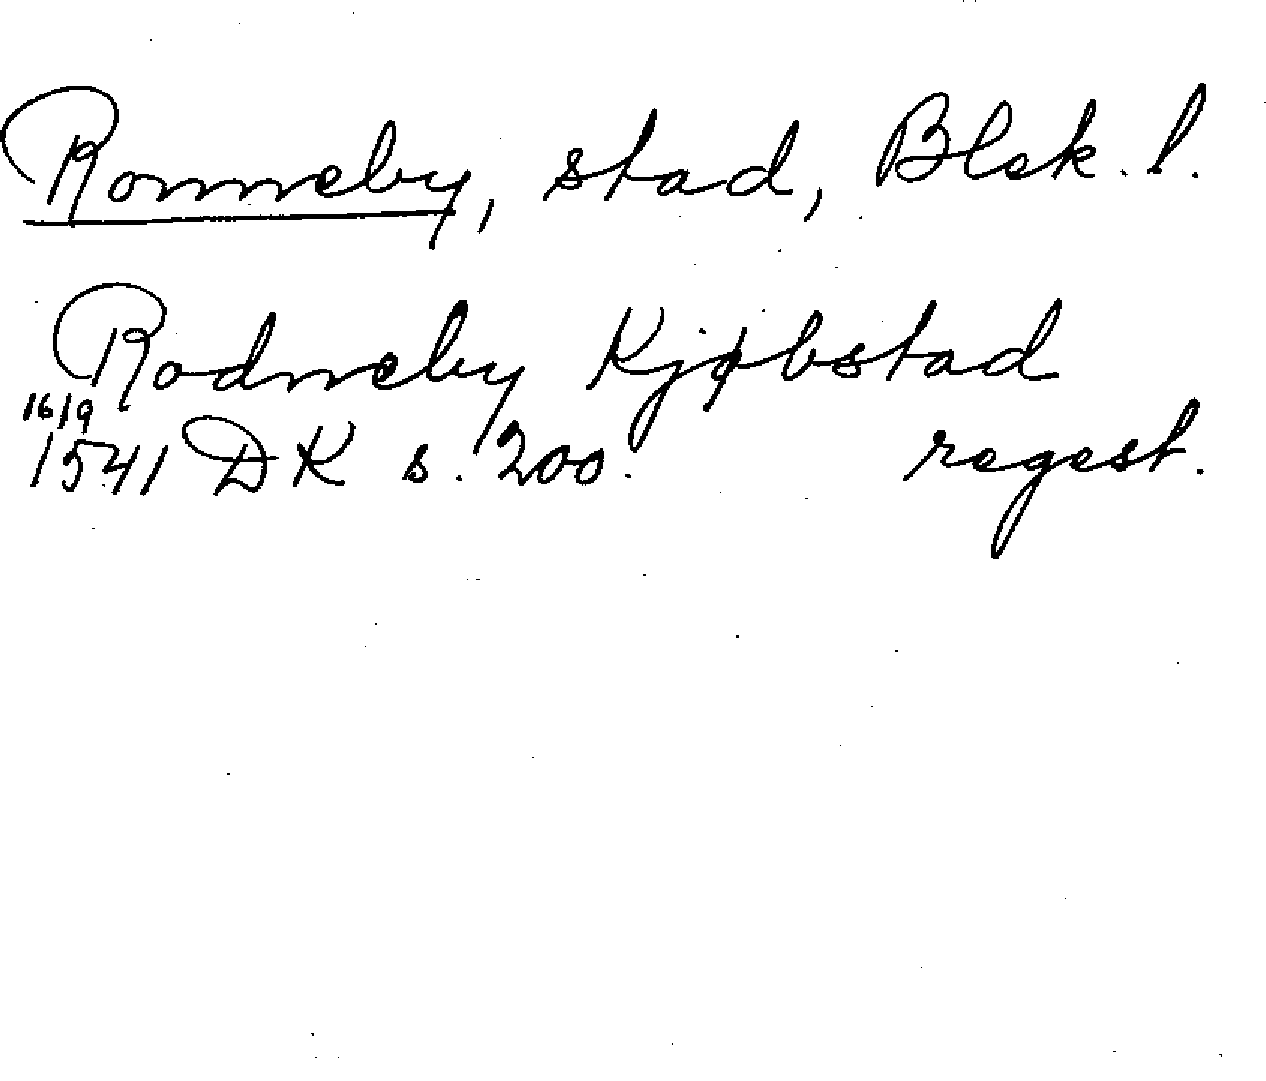 Ronneby, stad, Blek. l.
Rodneby Kjøbstad
16/9
1541 DK s. 200. regest.